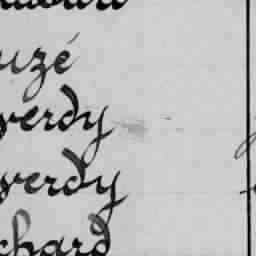 uzé
verdy
verdy
chard